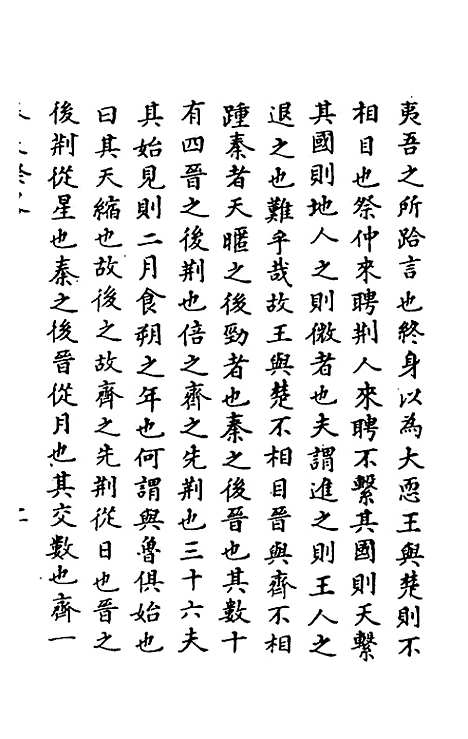 夷吾之所跲言也終身以為大恧王與楚則不
相目也祭仲來聘荆人來聘不繫其國則天繫
其國則地人之則微者也夫謂進之則王人之
退之也難乎哉故王與楚不相目晉與齊不相
踵秦者天暱之後勁者也秦之後晉也其數十
有四晉之後荆也倍之齊之先荆也三十六夫
其始見則二月食朔之年也何謂與魯俱始也
曰其天縮也故後之故齊之先荆從日也晉之
後荆從星也秦之後晉從月也其交數也齊一